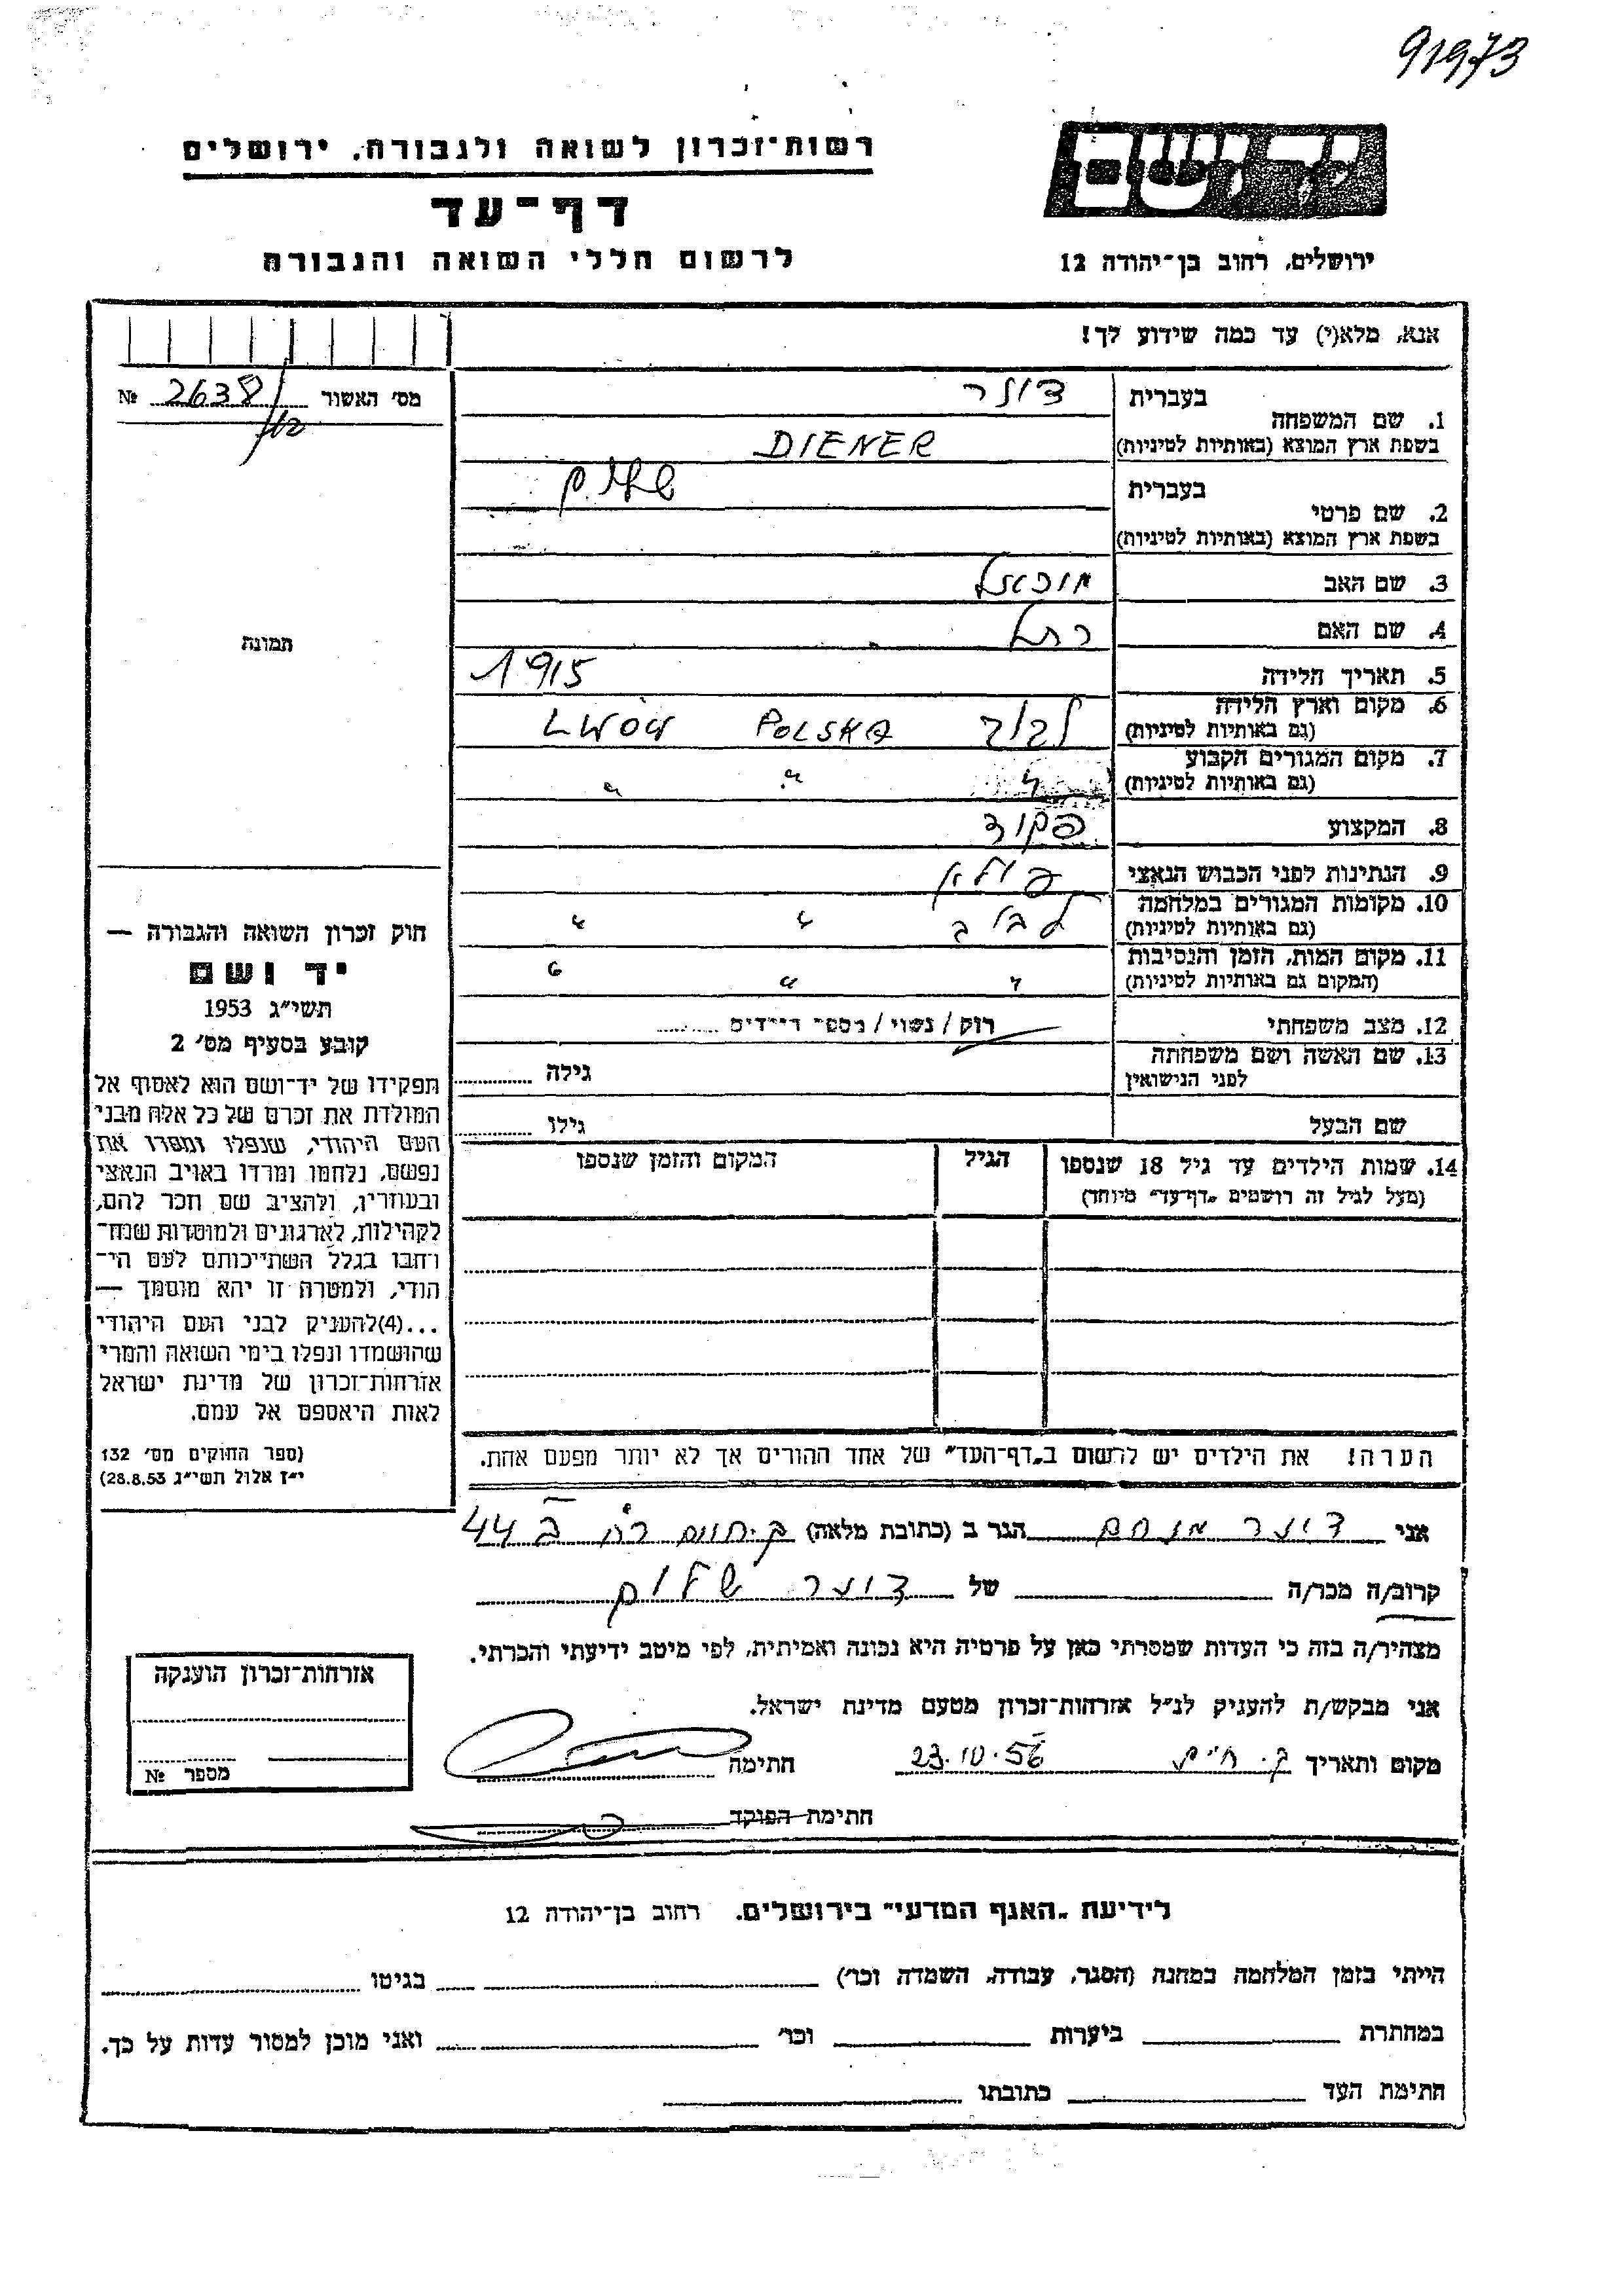 91973
יד ושם
רשות־זכרון לשואה ולגבורה, ירושלים
דף־עד
לרשום חללי השואה והגבורה
ירושלים, רחוב בן־יהודה 12
אנא, מלא(י) עד כמה שידוע לך!
מס' האשור 2638/ №
בעברית דינר
1. שם המשפחה
בשפת ארץ המוצא (באותיות לטיניות) DIENER
בעברית שלום
2. שם פרטי
בשפת ארץ המוצא (באותיות לטיניות)
3. שם האב מיכאל
4. שם האם רחל
5. תאריך הלידה 1915
6. מקום וארץ הלידה לבוב POLSKA LWÓW
(גם באותיות לטיניות)
7. מקום המגורים הקבוע " " "
(גם באותיות לטיניות)
8. המקצוע פקיד
9. הנתינות לפני הכבוש הנאצי פולין
10. מקומות המגורים במלחמה לבוב " "
(גם באותיות לטיניות)
11. מקום המות, הזמן והנסיבות " " "
(המקום גם באותיות לטיניות)
12. מצב משפחתי רוק / נשוי / מספר הילדים
13. שם האשה ושם משפחתה גילה
לפני הנישואין
שם הבעל גילו
14. שמות הילדים עד גיל 18 שנספו הגיל המקום והזמן שנספו
(מעל לגיל זה רושמים „דף־עד" מיוחד)
הערה! את הילדים יש לרשום ב„דף־העד" של אחד ההורים אך לא יותר מפעם אחת.
תמונה
חוק זכרון השואה והגבורה —
יד ושם
תשי״ג 1953
קובע בסעיף מס' 2
תפקידו של יד־ושם הוא לאסוף אל
המולדת את זכרם של כל אלה מבני
העם היהודי, שנפלו ומסרו את
נפשם, נלחמו ומרדו באויב הנאצי
ובעוזריו, ולהציב שם וזכר להם,
לקהילות, לארגונים ולמוסדות שנח־
רבו בגלל השתייכותם לעם הי־
הודי, ולמטרה זו יהא מוסמך —
...(4)להעניק לבני העם היהודי
שהושמדו ונפלו בימי השואה והמרי
אזרחות־זכרון של מדינת ישראל
לאות היאספם אל עמם.
(ספר החוקים מס' 132
י״ז אלול תשי״ג 28.8.53)
אני דינר מנחם הגר ב (כתובת מלאה) ק. חיים רח' ב 44
קרוב/ה מכר/ה של דינר שלום
מצהיר/ה בזה כי העדות שמסרתי כאן על פרטיה היא נכונה ואמיתית, לפי מיטב ידיעתי והכרתי.
אני מבקש/ת להעניק לנ״ל אזרחות־זכרון מטעם מדינת ישראל.
מקום ותאריך ק. חיים 23.10.56 חתימה
חתימת הפוקד
אזרחות־זכרון הוענקה
מספר №
לידיעת „האגף המדעי" בירושלים, רחוב בן־יהודה 12
הייתי בזמן המלחמה במחנה (הסגר, עבודה, השמדה וכו') בגיטו
במחתרת ביערות וכו' ואני מוכן למסור עדות על כך.
חתימת העד כתובתו